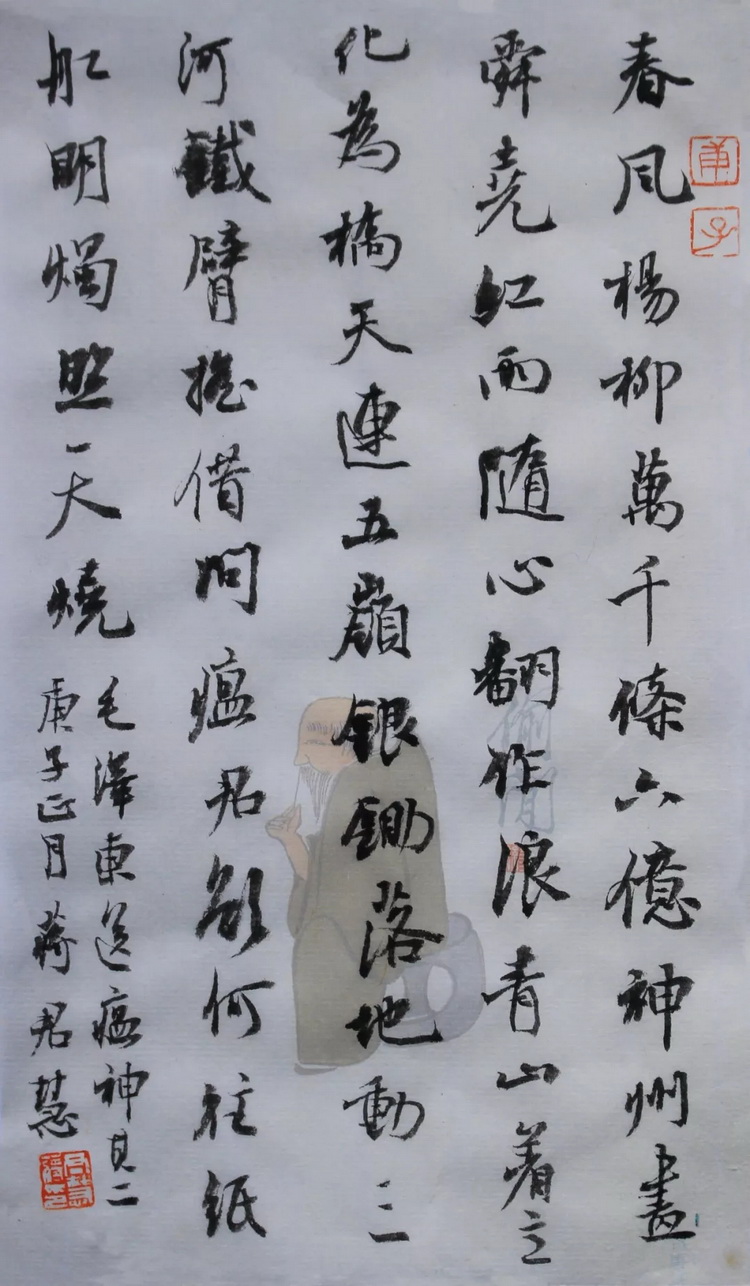 庚子
春風楊柳萬千條六億神州盡
舜堯紅雨隨心翻作浪青山着意
化為橋天連五嶺銀鋤落地動三
河鐵臂搖借問瘟君欲何往紙
船明燭照天燒
毛澤東送瘟神其二
庚子正月蔣君慧
偷閒